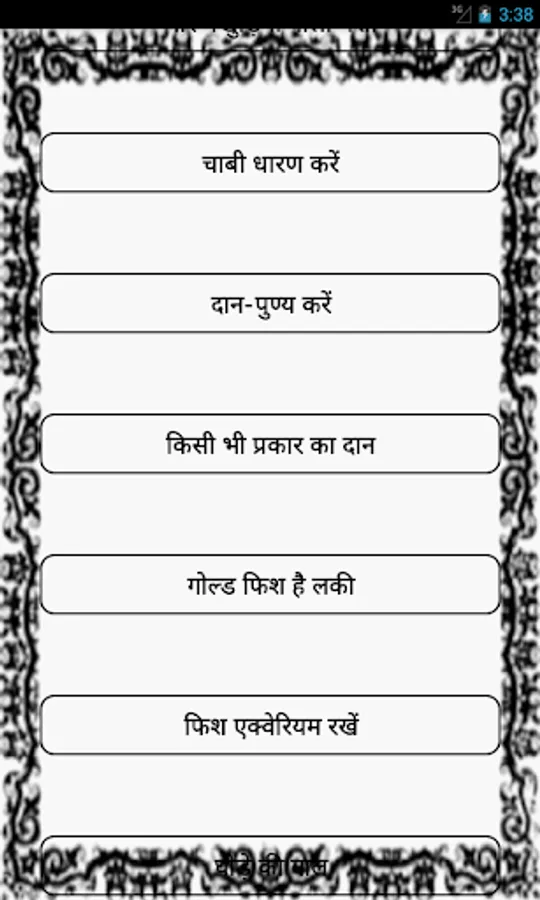 3G 3:38
चाबी धारण करें
दान-पुण्य करें
किसी भी प्रकार का दान
गोल्ड फिश है लकी
फिश एक्वेरियम रखें
की